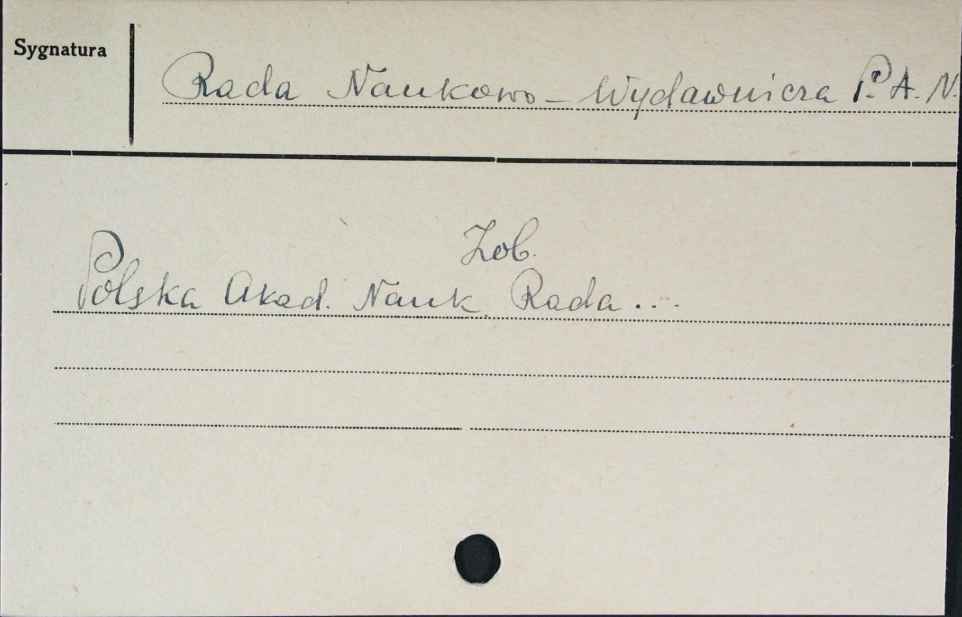 Sygnatura
Rada Naukowo - Wydawnicza P. A. N.
Zob.
Polska Akad. Nauk. Rada ...